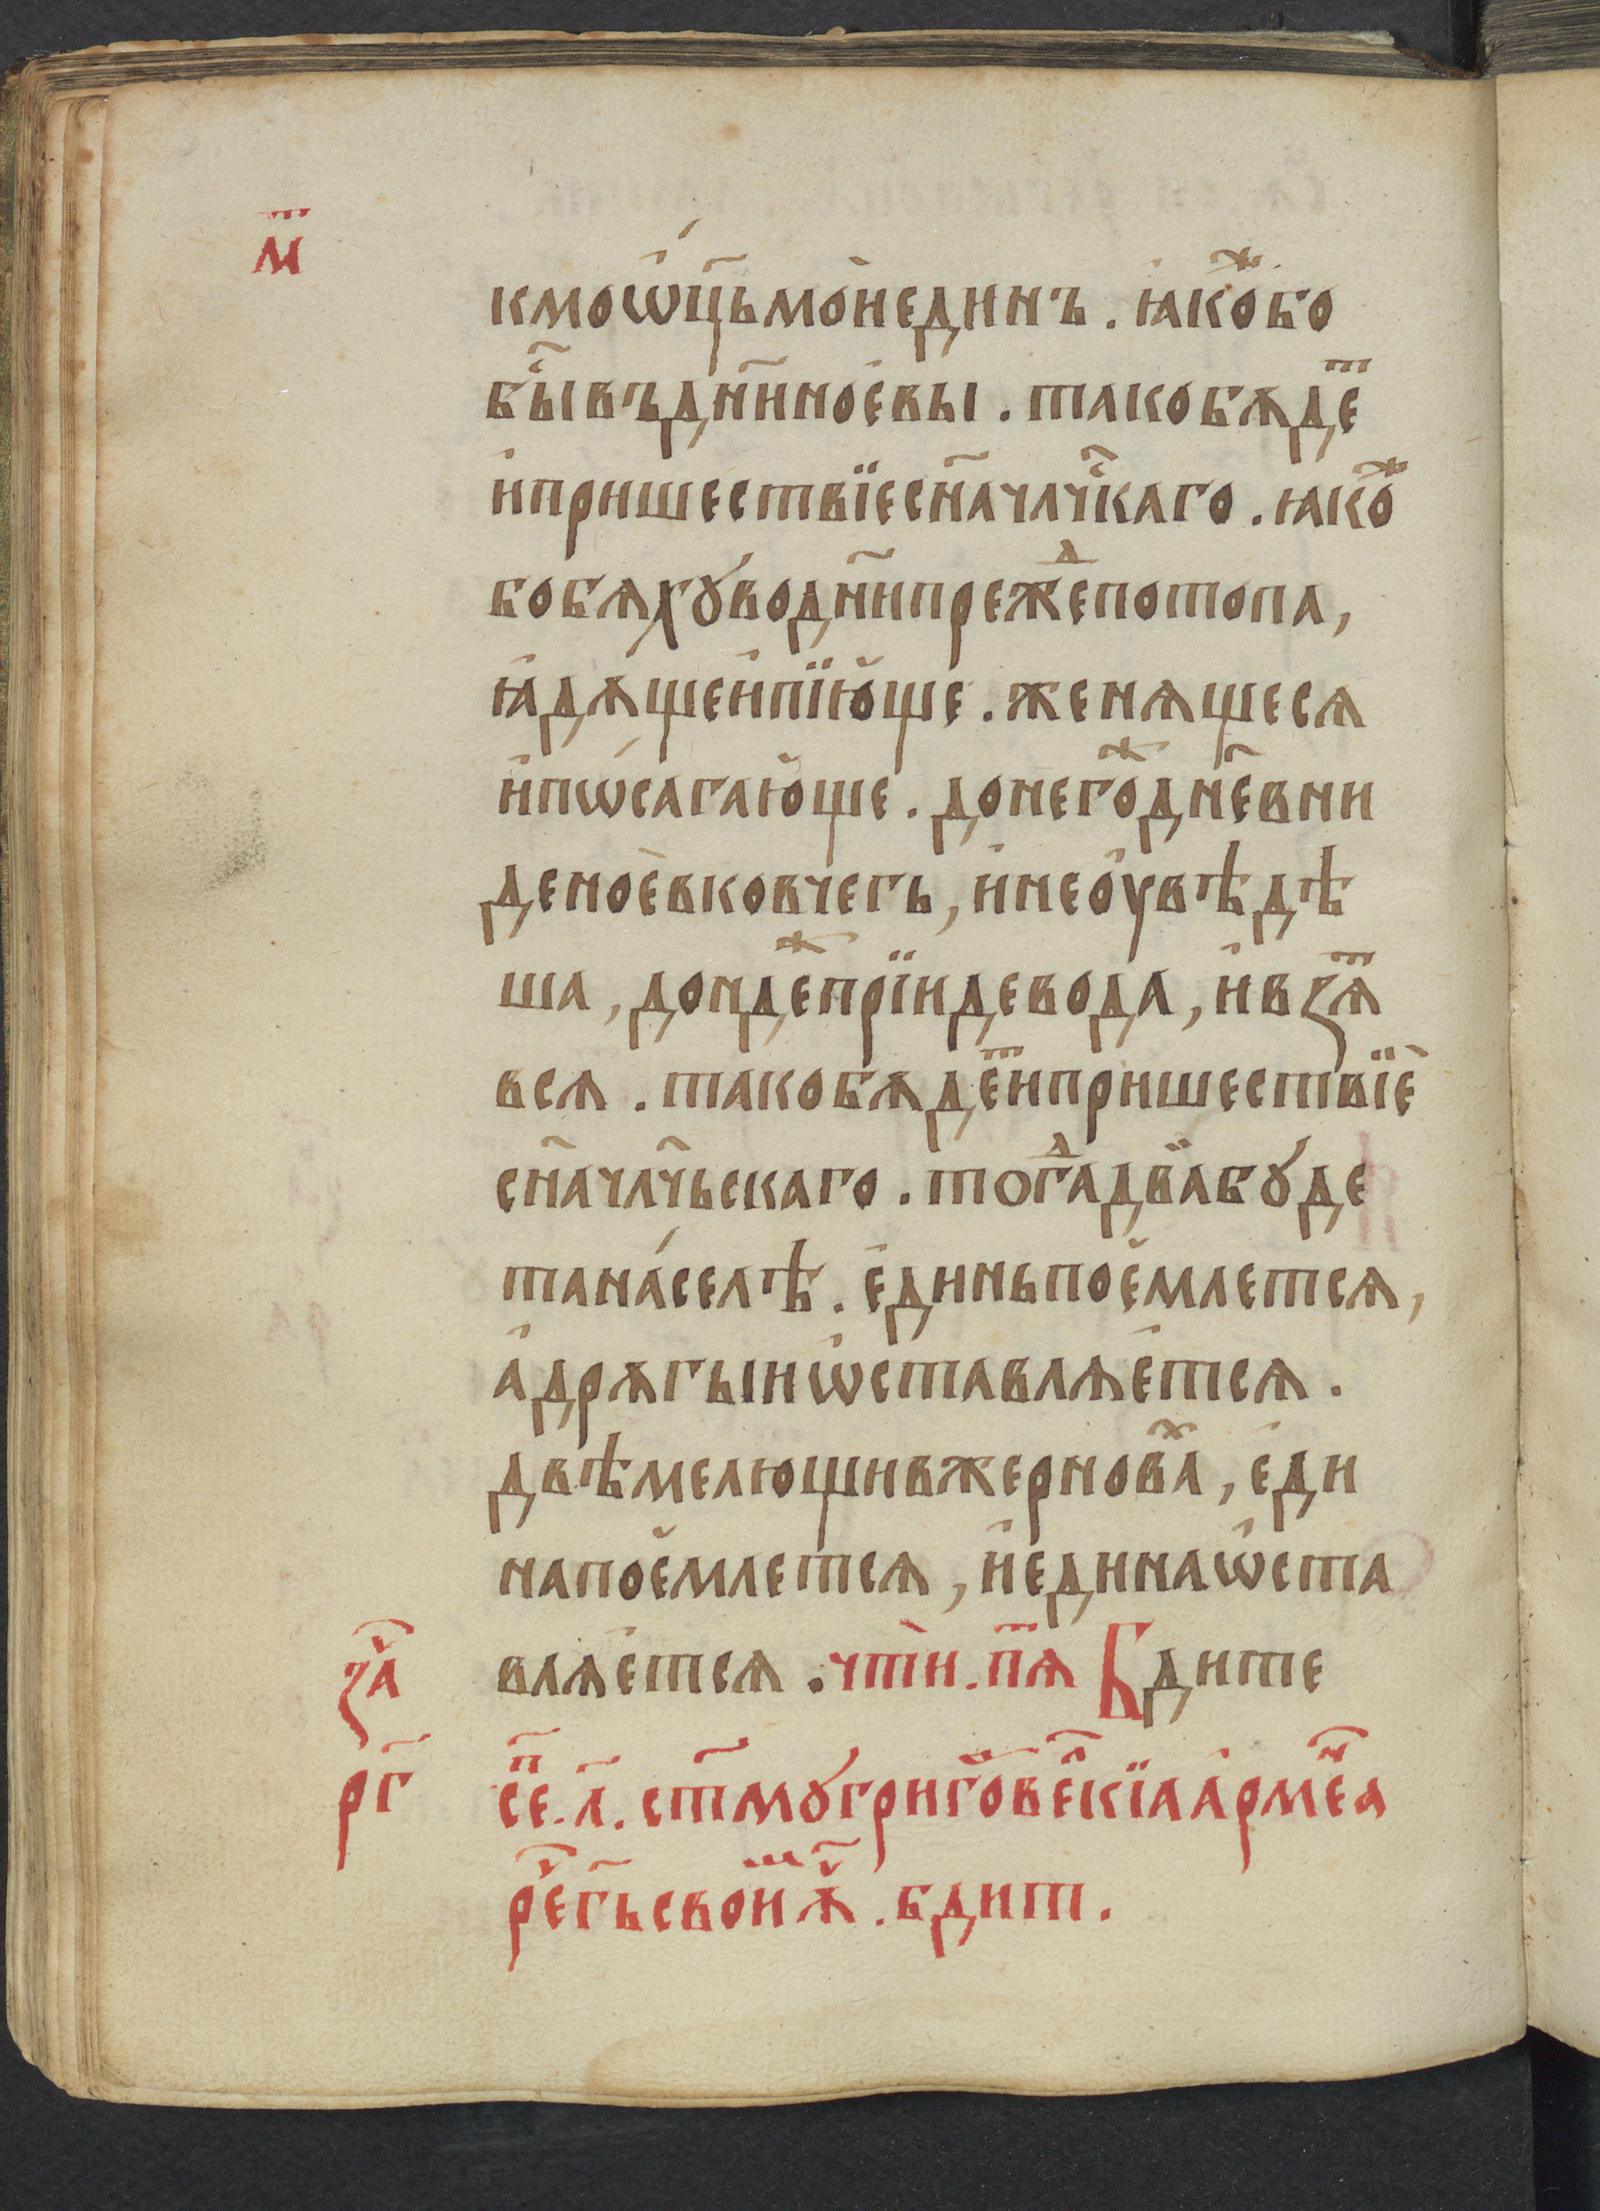 м҃т
кмоѡ҆ц҃ьмо̀и҆единъ. ꙗ҆кожⷤбо
бы́въдн҃и҆но҆евы. такобѧдеⷮ
и҆пришествїесн҃ачл҃чⷭкаго. ꙗкоⷤ
бобѧхꙋводн҃ипрежⷣепотопа,
ꙗ҆дѧ́щеи҆пїю҆ще. женѧщесѧ
и҆пѡ́сагаю҆ще. донегоⷤдн҃евни
деноѐвковчегь, и҆нео҆увѣдѣ
ша, дондеⷤпрїидевода, и҆взѧⷮ
всѧ. такобѧдеⷮи҆пришествїѐ
сн҃ачл҃чьскаго. тогⷣадвабꙋде
тана́селѣ. е҆диньпое҆млетсѧ,
а҆дрѧгыиѡ҆ставлѧе҆тсѧ.
двѣмелющивжерноваⷯ, е҆ди
напое҆млетсѧ, и҆единаѡ҆ста
влѧе҆тсѧ. чтѝ. пⷮѧ Бдите
заⷱ҇
рг҃
сеⷫ҇. л҃. ст҃мꙋгригоⷬвеⷧ҇кїаа҆рмеⷩ҇а
реⷱ҇г҃ьсвоиⷨѧⷱ҇. бдит.